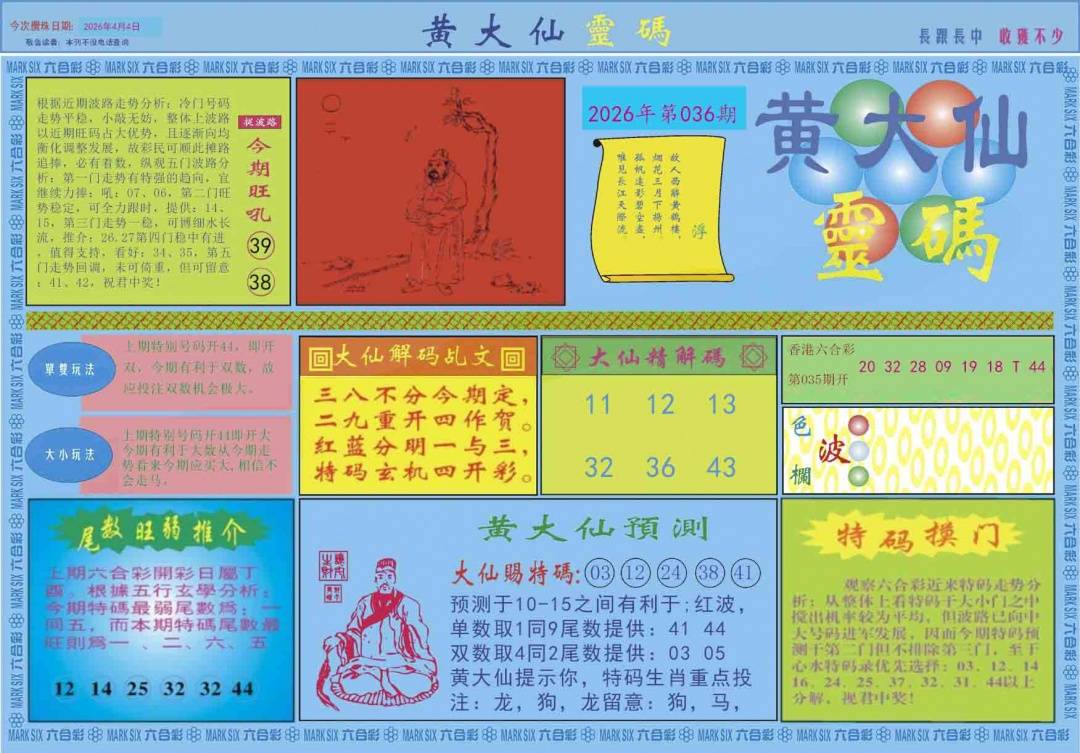 今次攪珠日期: 2026年4月4日
敬告讀書: 本刊不设电话查询
黄大仙靈碼
長跟長中 收獲不少
MARK SIX 六合彩
根据近期波路走势分析: 冷门号码
走势平稳, 小敲无妨, 整体上波路
以近期旺码占大优势, 且逐渐向均
衡化调整发展, 故彩民可顺此摊路
追捧, 必有着数, 纵观五门波路分
析: 第一门走势有特强的趋向, 宜
继续力捧: 吼: 07、06, 第二门旺
势稳定, 可全力跟时, 提供: 14、
15, 第三门走势一稳, 可博细水长
流, 推介: 26.27第四门稳中有进
, 值得支持, 看好: 34、35, 第五
门走势回调, 未可倚重, 但可留意
: 41、42, 祝君中奖!
捉波路
今期旺吼
39
38
2026年第036期
故人西辭黃鶴樓,
烟花三月下揚州
孤帆遠影碧空盡,
唯見長江天際流。
浮
黄大仙
靈碼
單雙玩法
上期特别号码开44, 即开
双, 今期有利于双数, 故
应投注双数机会极大。
大小玩法
上期特别号码开44即开大
今期有利于大数从今期走
势看来今期应买大,相信不
会走马。
大仙解码乩文
三八不分今期定,
二九重开四作贺。
红蓝分明一与三,
特码玄机四开彩。
大仙精解碼
11 12 13
32 36 43
香港六合彩
第035期开
20 32 28 09 19 18 T 44
色
波
欄
尾数旺弱推介
上期六合彩開彩日屬丁
酉。根據五行玄學分析:
今期特碼最弱尾數爲: 一
同五, 而本期特碼尾數最
旺則爲一、二、六、五
12 14 25 32 32 44
黄大仙預測
大仙賜特碼: 03 12 24 38 41
预测于10-15之间有利于;红波,
单数取1同9尾数提供: 41 44
双数取4同2尾数提供: 03 05
黄大仙提示你, 特码生肖重点投
注: 龙, 狗, 龙留意: 狗, 马,
特码摸门
观察六合彩近来特码走势分
析: 从整体上看特码于大小门之中
搅出机率较为平均, 但波路已向中
大号码进军发展, 因而今期特码预
测于第二门但不排除第三门, 至于
心水特码录优先选择: 03、12、14
16、24、25、37、32、31、44以上
分解, 祝君中奖!